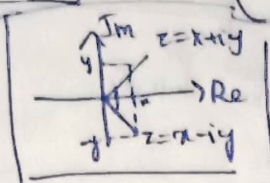 Im
y z=x+iy
x >Re
-y z=x-iy